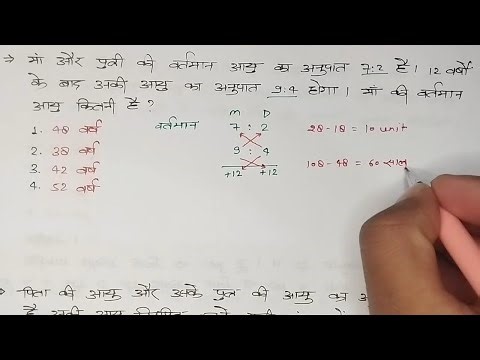 → मां और पुत्री की वर्तमान आयु का अनुपात 7:2 है। 12 वर्षों
के बाद उनकी आयु का अनुपात 9:4 होगा। मां की वर्तमान
आयु कितनी है?
1. 48 वर्ष
2. 38 वर्ष
3. 42 वर्ष
4. 52 वर्ष
M D
वर्तमान 7 : 2
9 : 4
+12 +12
28-18 = 10 unit
108-48 = 60 साल
→ पिता की आयु और उसके पुत्र की आयु का